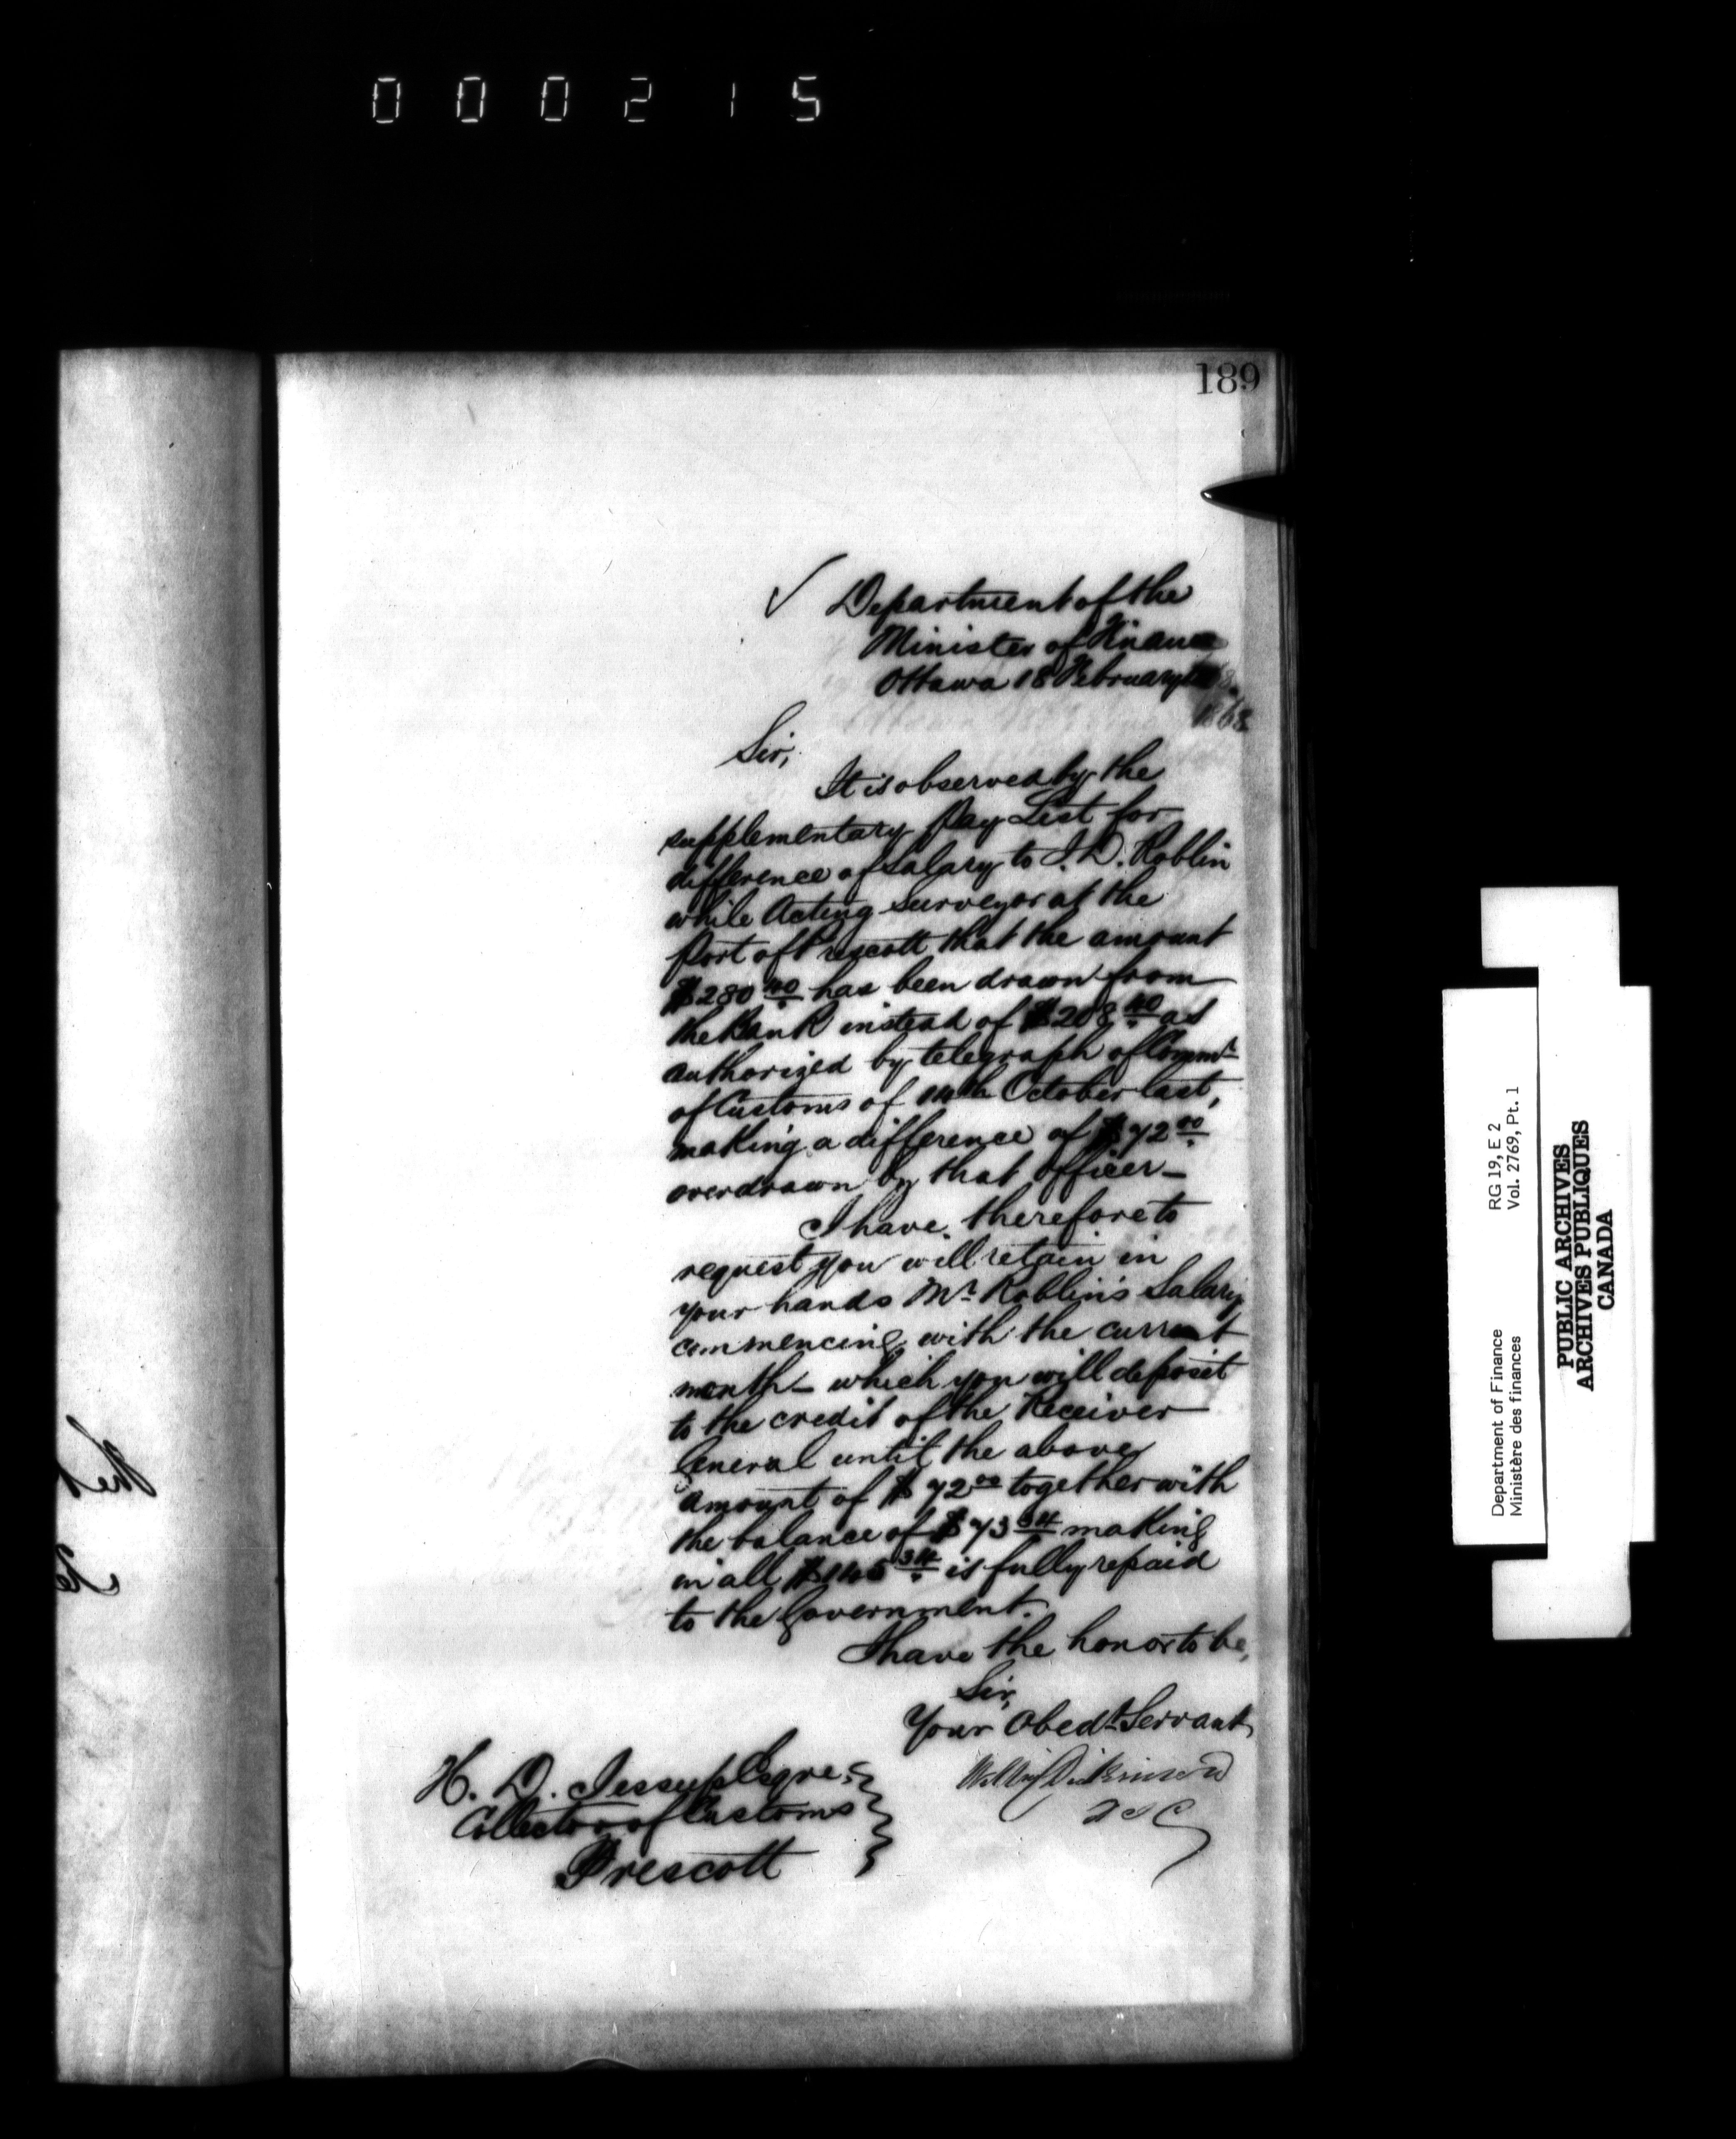 000215
189
✓ Department of the
Minister of Finance
Ottawa 18 February
1868
Sir,
It is observed by the
supplementary Pay List for
difference of Salary to J. D. Roblin
while Acting Surveyor at the
Port of Prescott that the amount
$280 40 has been drawn from
the Bank instead of $208 40 as
authorized by telegraph of Commr
of Customs of 14th October last,
making a difference of $72 00
overdrawn by that officer_
I have therefore to
request you will retain in
your hands Mr Roblin's Salary
commencing with the current
month_ which you will deposit
to the credit of the Receiver
General until the above
amount of $72 00 together with
the balance of $73 34 making
in all $145 34 is fully repaid
to the Government.
I have the honor to be,
Sir,
Your Obedt Servant
Dickinson
H. D. Jessup Esqre.
Collector of Customs
Prescott
Department of Finance RG 19, E 2
Ministère des finances Vol. 2769, Pt. 1
PUBLIC ARCHIVES
ARCHIVES PUBLIQUES
CANADA